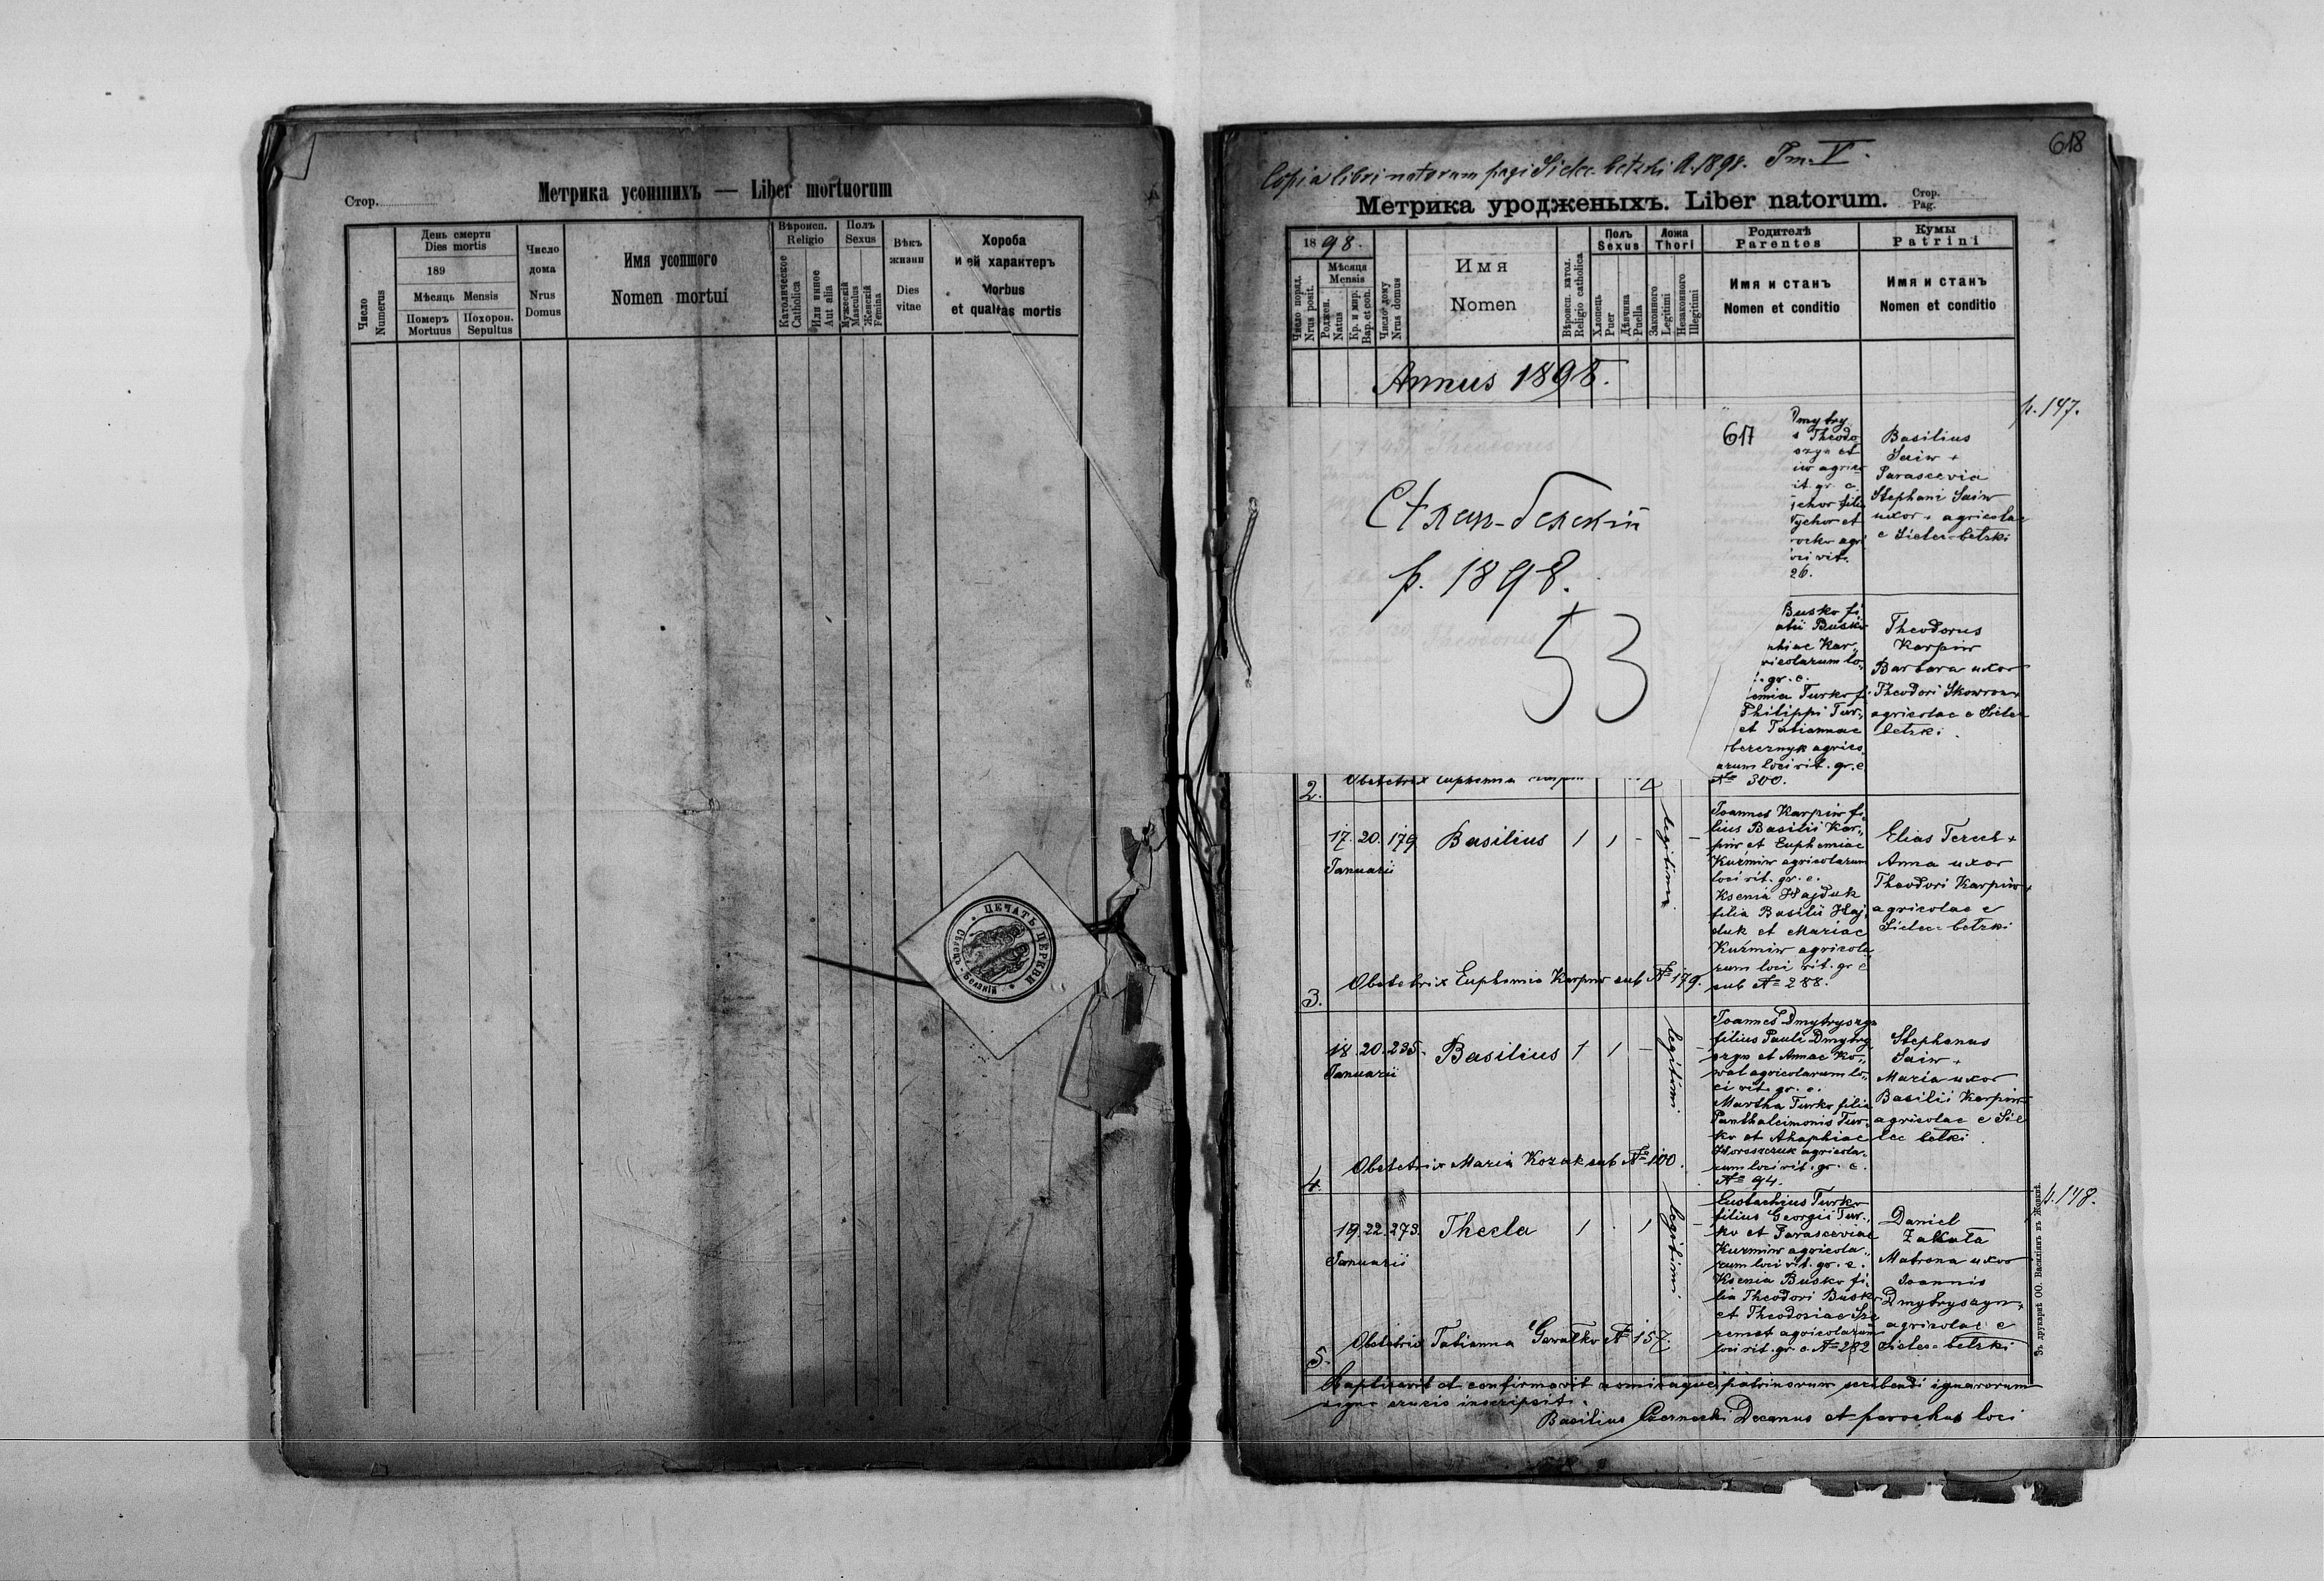 Стор.
Метрика усопшихъ — Liber mortuorum
Число
Numerus
День смерти
Dies mortis
189
Мѣсяць Mensis
Померъ
Mortuus
Похорон.
Sepultus
Число
дома
Nrus
Domus
Имя усопшого
Nomen mortui
Вѣроисп.
Religio
Католическое
Catholica
Или инное
Aut alia
Полъ
Sexus
Мужескій
Masculus
Женскій
Femina
Вѣкъ
жизни
Dies
vitae
Хороба
и ей характеръ
Morbus
et qualitas mortis
ПЕЧАТЬ ЦЕРКВИ
618
Copia libri natorum pagi Sielec betzki A. 1898. Tm. V.
Метрика уродженыхъ. Liber natorum.
Стор.
Pag.
1898.
Число поряд.
Nrus posit.
Мѣсяця
Mensis
Роджен.
Natus
Кр. и мир.
Bap. et con.
Число дому
Nrus domus
Имя
Nomen
Вѣроисп. катол.
Religio catholica
Полъ
Sexus
Хлопець
Puer
Дѣвчина
Puella
Ложа
Thori
Законного
Legitimi
Незаконного
Illegitimi
Родителѣ
Parentes
Имя и станъ
Nomen et conditio
Кумы
Patrini
Имя и станъ
Nomen et conditio
Annus 1898.
p. 147.
617
р. 1898.
53
Basilius
Saiw +
Parascevia
Stephani Saiw
uxor + agricolae
e Sielec betzki
26.
Busko fi
Theodorus
Karpiw
Barbara uxor
Theodori Skowron +
agricolae e Sielec
betzki.
gr. c.
Philippi Tur„
et Tatiannae
arum loci rit. gr. c.
№ 300.
2.
Obstetrix Euphemia
17. 20. 179 Basilius 1 1 - legitimi -
Januarii
Joannes Karpiw fi„
lius Basilii Kar„
piw et Euphemiae
Kuzmiw agricolarum
loci rit. gr. c.
Ksenia Hajduk
filia Basilii Haj
duk et Mariae
Kuzmiw agricola„
rum loci rit. gr c
sub № 288.
Elias Terect +
Anna uxor
Theodori Karpiw +
agricolae e
Sielec betzki
3.
Obstetrix Euphemia Karpiw sub № 179.
18. 20. 235. Basilius 1 1 - legitimi -
Januarii
Joannes Dmytryszyn
filius Pauli Dmytry
szyn et Annae Ko„
wal agricolarum lo„
ci rit. gr. c.
Martha Turko filia
Panthaleimonis Tur„
ko et Ahaphiae
agricola„
rum loci rit. gr. c.
№ 94.
Stephanus
Saiw +
Maria uxor
Basilii Karpiw +
agricolae e Sie
lec betzki.
4.
Obstetrix Maria Kozak sub № 100.
p. 148.
19. 22. 273. Thecla 1 . 1 legitimi -
Januarii
Eustachius Turko
filius Georgii Tur„
ko et Parasceviae
Kuzmiw agricola„
rum loci rit. gr. c.
Ksenia Busko fi„
lia Theodori Busko
et Theodosiae Sze
remet agricolarum
loci rit. gr. c. № 282
Daniel
Zakała
Matrona uxor
Joannis
Dmytryszyn +
agricolae e
Sielec betzki
5.
Obstetrix Tatianna Gawałko № 157.
Baptisavit et confirmavit nominaque patrinorum scribendi ignarorum
signo crucis inscripsit.
Basilius Czernecki Decanus et parochus loci
Зъ друкарнѣ ОО. Василіянъ въ Жовквѣ.